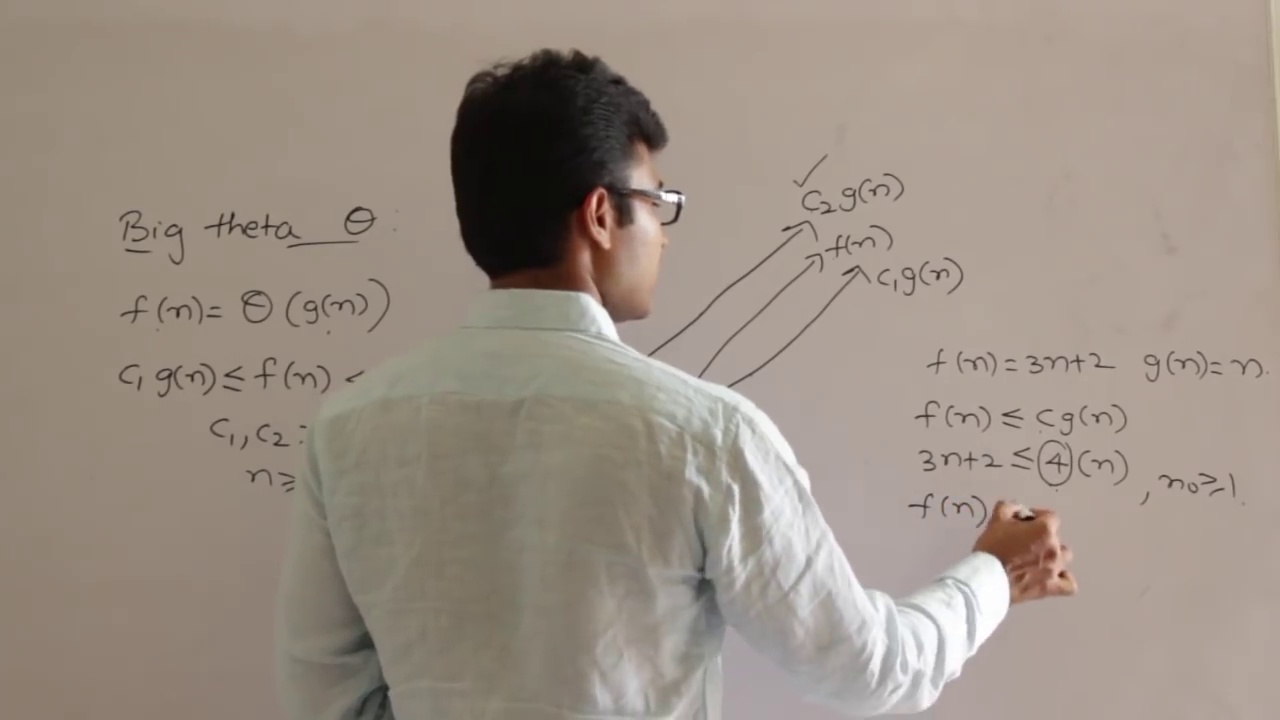 Big theta θ :
f(n) = θ (g(n))
c₁ g(n) ≤ f(n) ≤
c₁, c₂ :
n ≥
✓
c₂ g(n)
f(n)
c₁ g(n)
f(n) = 3n+2 g(n) = n.
f(n) ≤ cg(n)
3n+2 ≤ 4 (n) , n₀ ≥ 1.
f(n)